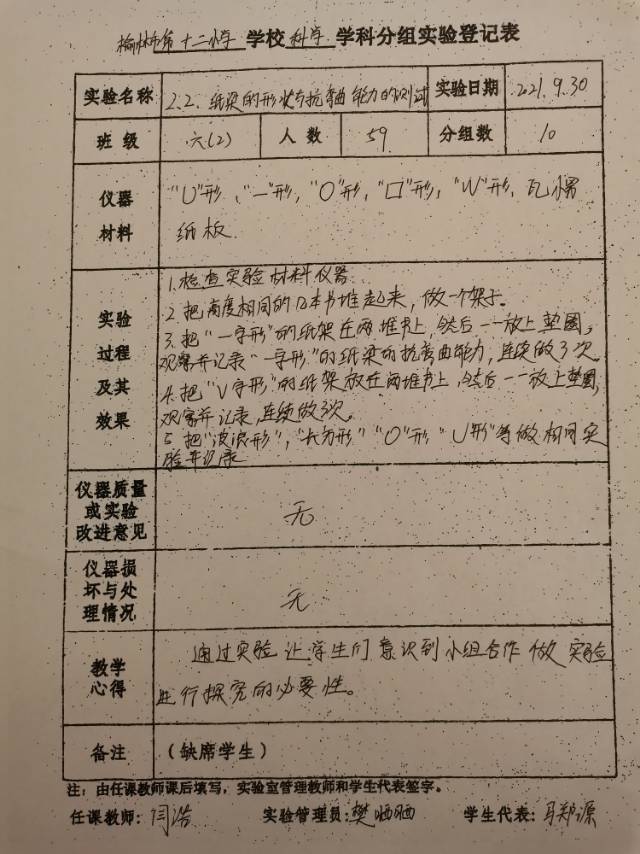 榆林市第十二小学 学校 科学 学科分组实验登记表
实验名称 2.2. 纸梁的形状与抗弯曲能力的测试 实验日期 2021.9.30
班级 六(2) 人数 59 分组数 10
仪器材料 "U"形、"一"形、"O"形、"口"形、"W"形、瓦楞
纸板
实验过程及其效果 1.检查实验材料仪器
2.把高度相同的几本书堆起来，做一个架子。
3.把"一字形"的纸架在两堆书上，然后一一放上垫圈，
观察并记录"一字形"的纸梁的抗弯曲能力，连续做3次
4.把"V字形"的纸架放在两堆书上，然后一一放上垫圈，
观察并记录，连续做3次。
5.把"波浪形"，"长方形""O"形"U形"等做相同实
验并记录
仪器质量或实验改进意见 无
仪器损坏与处理情况 无
教学心得 通过实验让学生们意识到小组合作做实验
进行探究的必要性。
备注 （缺席学生）
注：由任课教师课后填写，实验室管理教师和学生代表签字。
任课教师：闫浩 实验管理员：樊晒晒 学生代表：马郑源